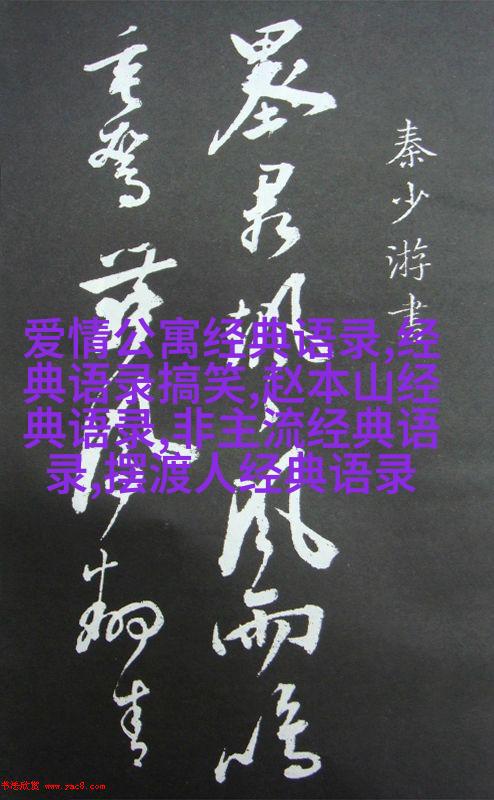 秦少游書
墨君風雨鳴
翻青
爱情公寓经典语录,经
典语录搞笑,赵本山经
典语录,非主流经典语
录,摆渡人经典语录
书法欣赏 www.yac8.com